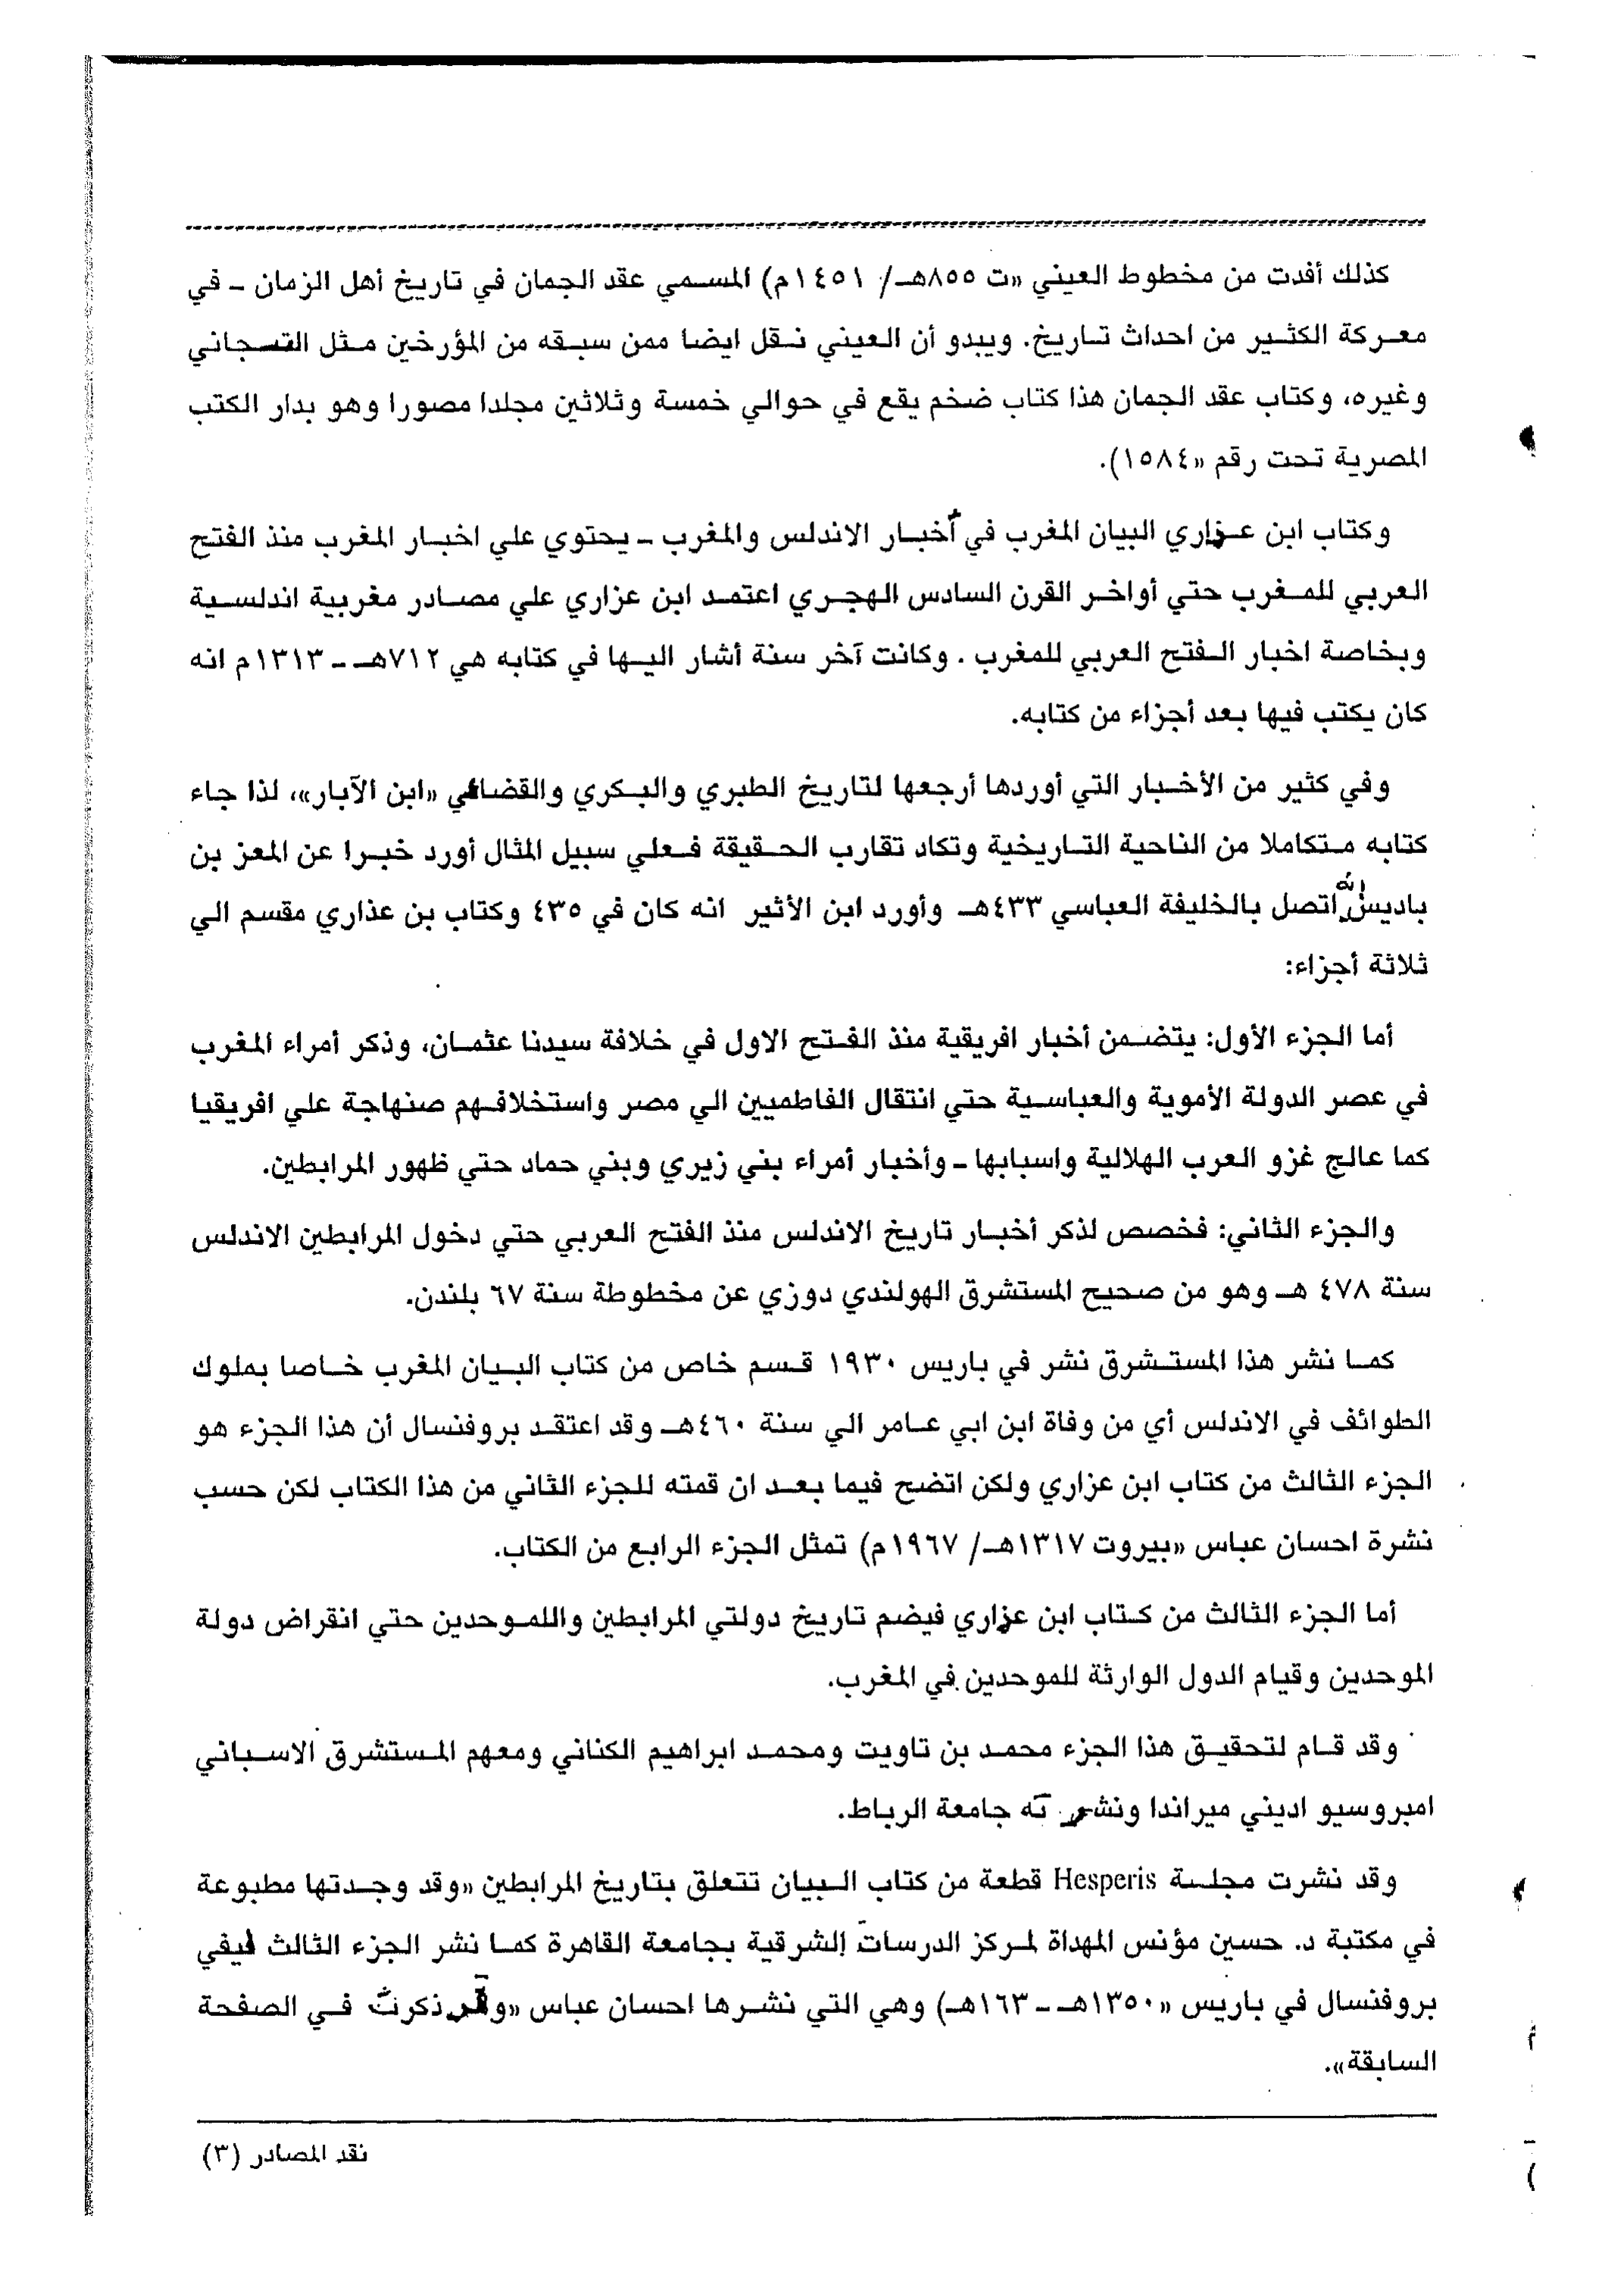 كذلك أفدت من مخطوط العيني «ت ٨٥٥هـ/ ١٤٥١م) المسمي عقد الجمان في تاريخ أهل الزمان - في
معركة الكثير من احداث تاريخ. ويبدو أن العيني نقل ايضا ممن سبقه من المؤرخين مثل التسجاني
وغيره، وكتاب عقد الجمان هذا كتاب ضخم يقع في حوالي خمسة وثلاثين مجلدا مصورا وهو بدار الكتب
المصرية تحت رقم «١٥٨٤).
وكتاب ابن عزاري البيان المغرب في أخبار الاندلس والمغرب - يحتوي علي اخبار المغرب منذ الفتح
العربي للمغرب حتي أواخر القرن السادس الهجري اعتمد ابن عزاري علي مصادر مغربية اندلسية
وبخاصة اخبار الفتح العربي للمغرب . وكانت آخر سنة أشار اليها في كتابه هي ٧١٢هـ - ١٣١٣م انه
كان يكتب فيها بعد أجزاء من كتابه.
وفي كثير من الأخبار التي أوردها أرجعها لتاريخ الطبري والبكري والقضاعي «ابن الآبار»، لذا جاء
كتابه متكاملا من الناحية التاريخية وتكاد تقارب الحقيقة فعلي سبيل المثال أورد خبرا عن المعز بن
باديس انه اتصل بالخليفة العباسي ٤٣٣هـ وأورد ابن الأثير انه كان في ٤٣٥ وكتاب بن عذاري مقسم الي
ثلاثة أجزاء:
أما الجزء الأول: يتضمن أخبار افريقية منذ الفتح الاول في خلافة سيدنا عثمان، وذكر أمراء المغرب
في عصر الدولة الأموية والعباسية حتي انتقال الفاطميين الي مصر واستخلافهم صنهاجة علي افريقيا
كما عالج غزو العرب الهلالية واسبابها - وأخبار أمراء بني زيري وبني حماد حتي ظهور المرابطين.
والجزء الثاني: فخصص لذكر أخبار تاريخ الاندلس منذ الفتح العربي حتي دخول المرابطين الاندلس
سنة ٤٧٨ هـ وهو من صحيح المستشرق الهولندي دوزي عن مخطوطة سنة ٦٧ بلندن.
كما نشر هذا المستشرق نشر في باريس ١٩٣٠ قسم خاص من كتاب البيان المغرب خاصا بملوك
الطوائف في الاندلس أي من وفاة ابن ابي عامر الي سنة ٤٦٠هـ وقد اعتقد بروفنسال أن هذا الجزء هو
الجزء الثالث من كتاب ابن عزاري ولكن اتضح فيما بعد ان قمته للجزء الثاني من هذا الكتاب لكن حسب
نشرة احسان عباس «بيروت ١٣١٧هـ/ ١٩٦٧م) تمثل الجزء الرابع من الكتاب.
أما الجزء الثالث من كتاب ابن عزاري فيضم تاريخ دولتي المرابطين واللموحدين حتي انقراض دولة
الموحدين وقيام الدول الوارثة للموحدين في المغرب.
وقد قام لتحقيق هذا الجزء محمد بن تاويت ومحمد ابراهيم الكناني ومعهم المستشرق الاسباني
امبروسيو اديني ميراندا ونشرته جامعة الرباط.
وقد نشرت مجلسة Hesperis قطعة من كتاب البيان تتعلق بتاريخ المرابطين «وقد وجدتها مطبوعة
في مكتبة د. حسين مؤنس المهداة لمركز الدرسات الشرقية بجامعة القاهرة كما نشر الجزء الثالث ليفي
بروفنسال في باريس «١٣٥٠هـ - ١٦٣هـ) وهي التي نشرها احسان عباس «وقد ذكرت في الصفحة
السابقة».
نقد المصادر (٣)